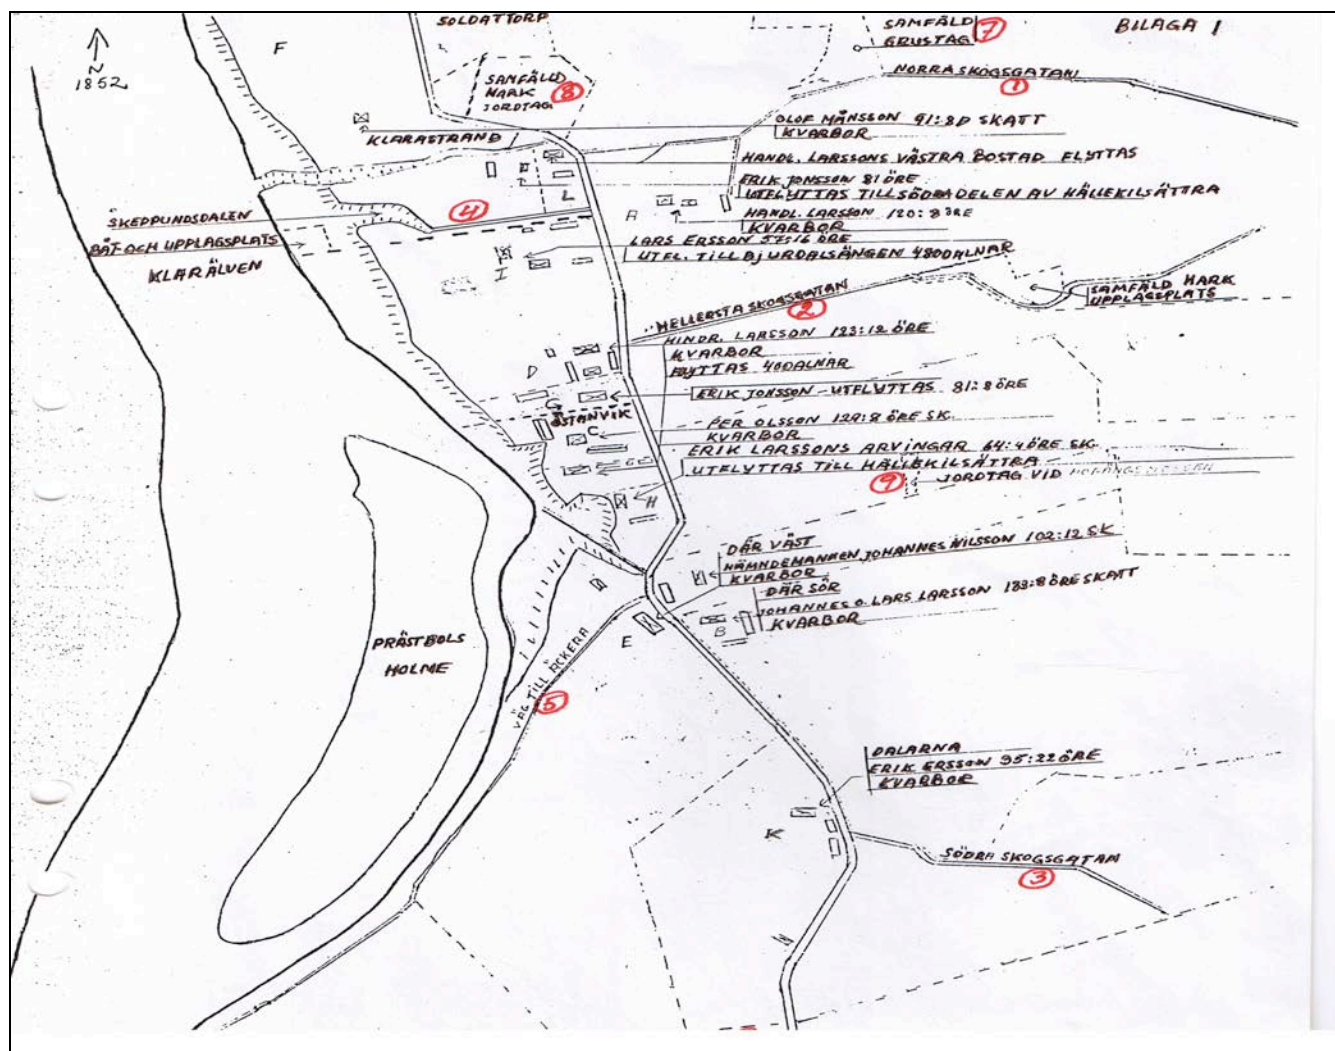 SOLDATTORP
SAMFÄLD
GRUSTAG
7
BILAGA 1
F
N
1852
SAMFÄLD
MARK
JORDTAG
8
NORRA SKOGSGATAN
1
OLOF MÅNSSON 91:8D SKATT
KVARBOR
KLARASTRAND
HANDL. LARSSONS VÄSTRA BOSTAD FLYTTAS
ERIK JONSSON 81 ÖRE
UTFLYTTAS TILL SÖDRA DELEN AV HÄLLEKILSÄTTRA
L
A
4
HANDL. LARSSON 120:8 ÖRE
KVARBOR
SKEPPUNDSDALEN
BÅT OCH UPPLAGSPLATS
KLARÄLVEN
LARS ERSSON 57:16 ÖRE
UTFL. TILL BJURDALSÄNGEN 4800 ALNAR
I
SAMFÄLD MARK
UPPLAGSPLATS
HELLERSTA SKOGSGATAN
2
HINDR. LARSSON 123:12 ÖRE
KVARBOR
FLYTTAS 40 DALNAR
D
ERIK JONSSON - UTFLYTTAS 81:8 ÖRE
G
ÖSTANVIK
C
PER OLSSON 129:8 ÖRE SK.
KVARBOR
ERIK LARSSONS ARVINGAR 64:4 ÖRE SK.
UTFLYTTAS TILL HÄLLEKILSÄTTRA
9
JORDTAG VID
H
DÄR VÄST
NÄMNDEMANNEN JOHANNES NILSSON 102:12 SK
KVARBOR
DÄR SÖR
JOHANNES O. LARS LARSSON 133:8 ÖRE SKATT
KVARBOR
B
E
PRÄSTBOLS
HOLME
VÄG TILL ÅCKERA
5
DALARNA
ERIK ERSSON 95:22 ÖRE
KVARBOR
K
SÖDRA SKOGSGATAN
3